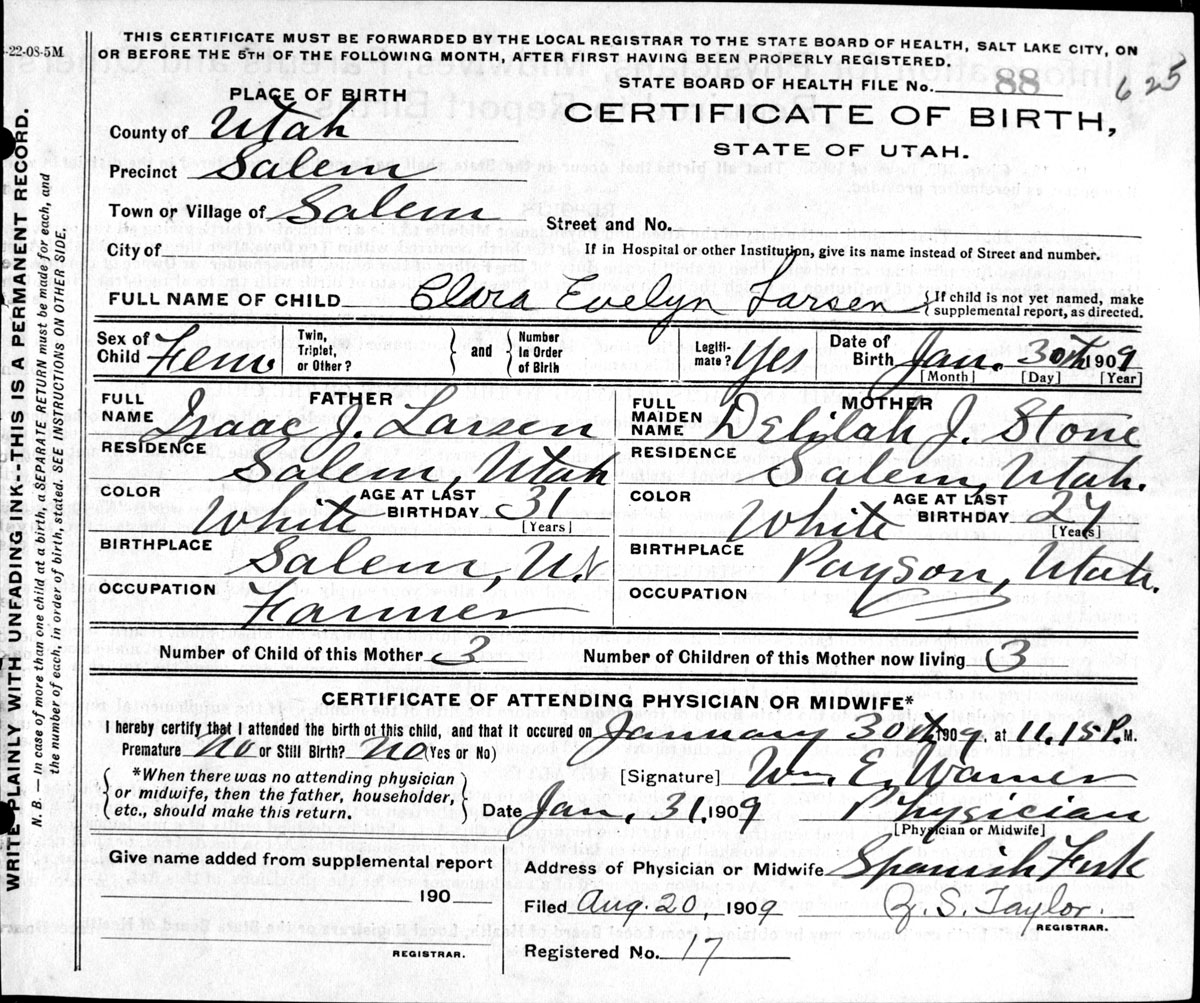 THIS CERTIFICATE MUST BE FORWARDED BY THE LOCAL REGISTRAR TO THE STATE BOARD OF HEALTH, SALT LAKE CITY, ON
-22-08-5M
OR BEFORE THE 5TH OF THE FOLLOWING MONTH, AFTER FIRST HAVING BEEN PROPERLY REGISTERED.
STATE BOARD OF HEALTH FILE No. 88 625
PLACE OF BIRTH
CERTIFICATE OF BIRTH,
STATE OF UTAH.
County of Utah
Precinct Salem
Town or Village of Salem
Street and No.
City of
If in Hospital or other Institution, give its name instead of Street and number.
FULL NAME OF CHILD Clara Evelyn Larsen { If child is not yet named, make
supplemental report, as directed.
Sex of Child Fem. Twin, Triplet, or Other? } and { Number In Order of Birth Legiti- mate? Yes Date of Birth Jan. 30th 1909
[Month] [Day] [Year]
FATHER
FULL NAME Isaac J. Larsen
RESIDENCE Salem, Utah
COLOR White AGE AT LAST BIRTHDAY 31 [Years]
BIRTHPLACE Salem, Ut
OCCUPATION Farmer
MOTHER
FULL MAIDEN NAME Delilah J. Stone
RESIDENCE Salem Utah.
COLOR White AGE AT LAST BIRTHDAY [Years]
BIRTHPLACE Payson, Utah.
OCCUPATION
Number of Child of this Mother 3 Number of Children of this Mother now living 3
CERTIFICATE OF ATTENDING PHYSICIAN OR MIDWIFE*
I hereby certify that I attended the birth of this child, and that it occured on January 30th 1909, at 11.15 P.M.
Premature No or Still Birth? No (Yes or No)
*When there was no attending physician
or midwife, then the father, householder,
etc., should make this return.
[Signature] Wm. E. Warner
Date Jan. 31, 1909 Physician
[Physician or Midwife]
Give name added from supplemental report
190
REGISTRAR.
Address of Physician or Midwife Spanish Fork
Filed Aug. 20, 1909 Z. S. Taylor.
REGISTRAR.
Registered No. 17
WRITE PLAINLY WITH UNFADING INK--THIS IS A PERMANENT RECORD.
N. B. — In case of more than one child at a birth, a SEPARATE RETURN must be made for each, and
the number of each, in order of birth, stated. SEE INSTRUCTIONS ON OTHER SIDE.